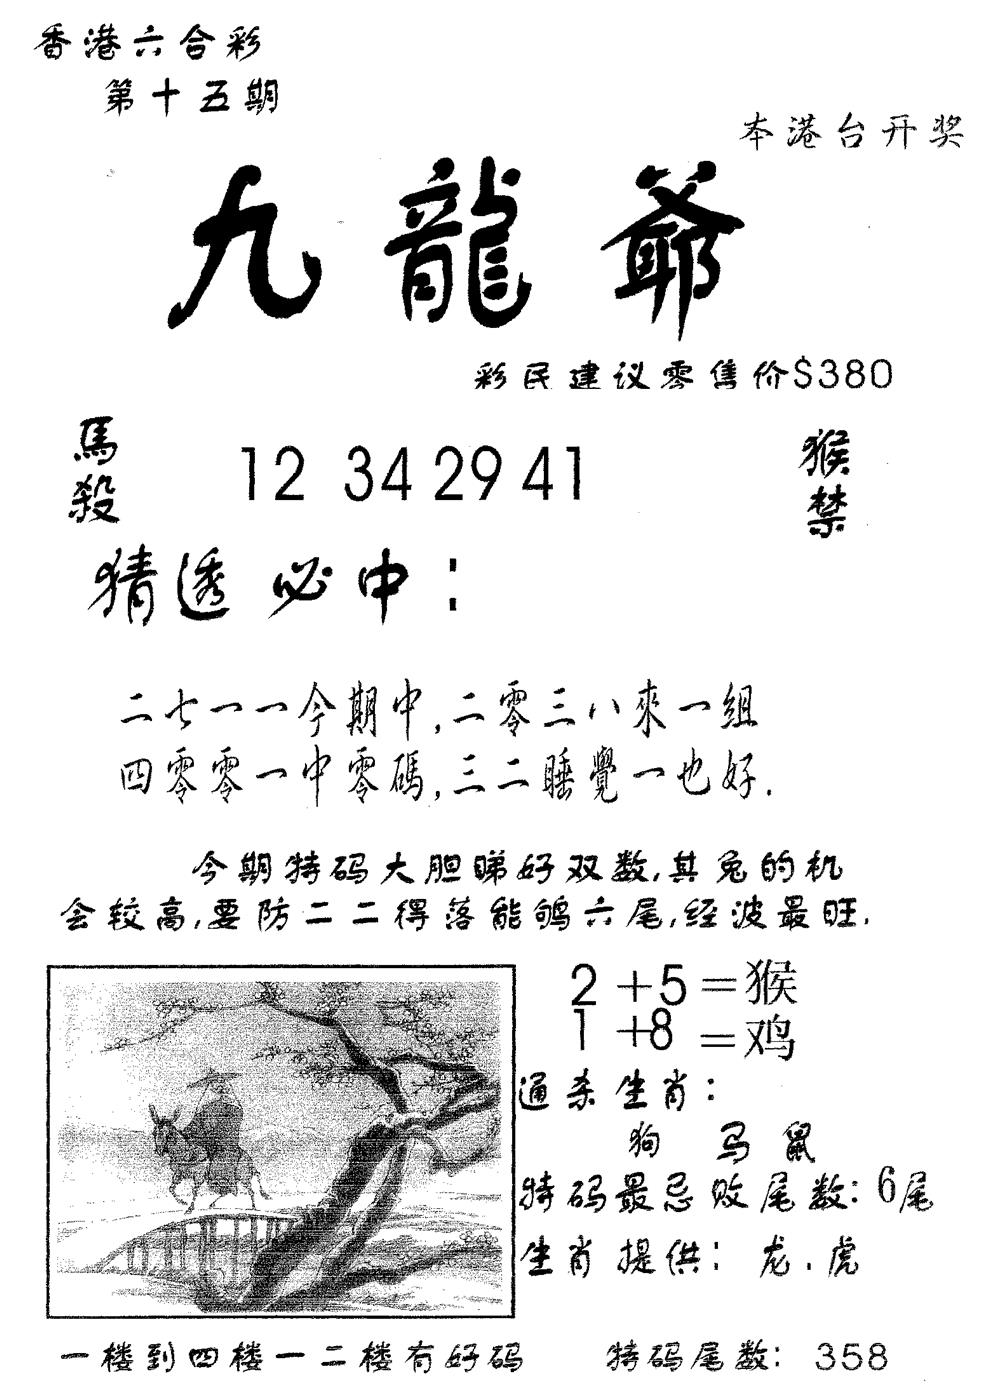 香港六合彩
第十五期
本港台开奖
九龍爺
彩民建议零售价$380
馬殺
12 34 29 41
猴禁
猜透必中：
二七一一今期中,二零三八來一组
四零零一中零碼,三二睡覺一也好.
今期特码大胆睇好双数,其兔的机
会较高,要防二二得落能鸲六尾,经波最旺.
2+5=猴
1+8=鸡
通杀生肖：
狗 马 鼠
特码最忌败尾数：6尾
生肖提供：龙.虎
一楼到四楼一二楼有好码 特码尾数：358